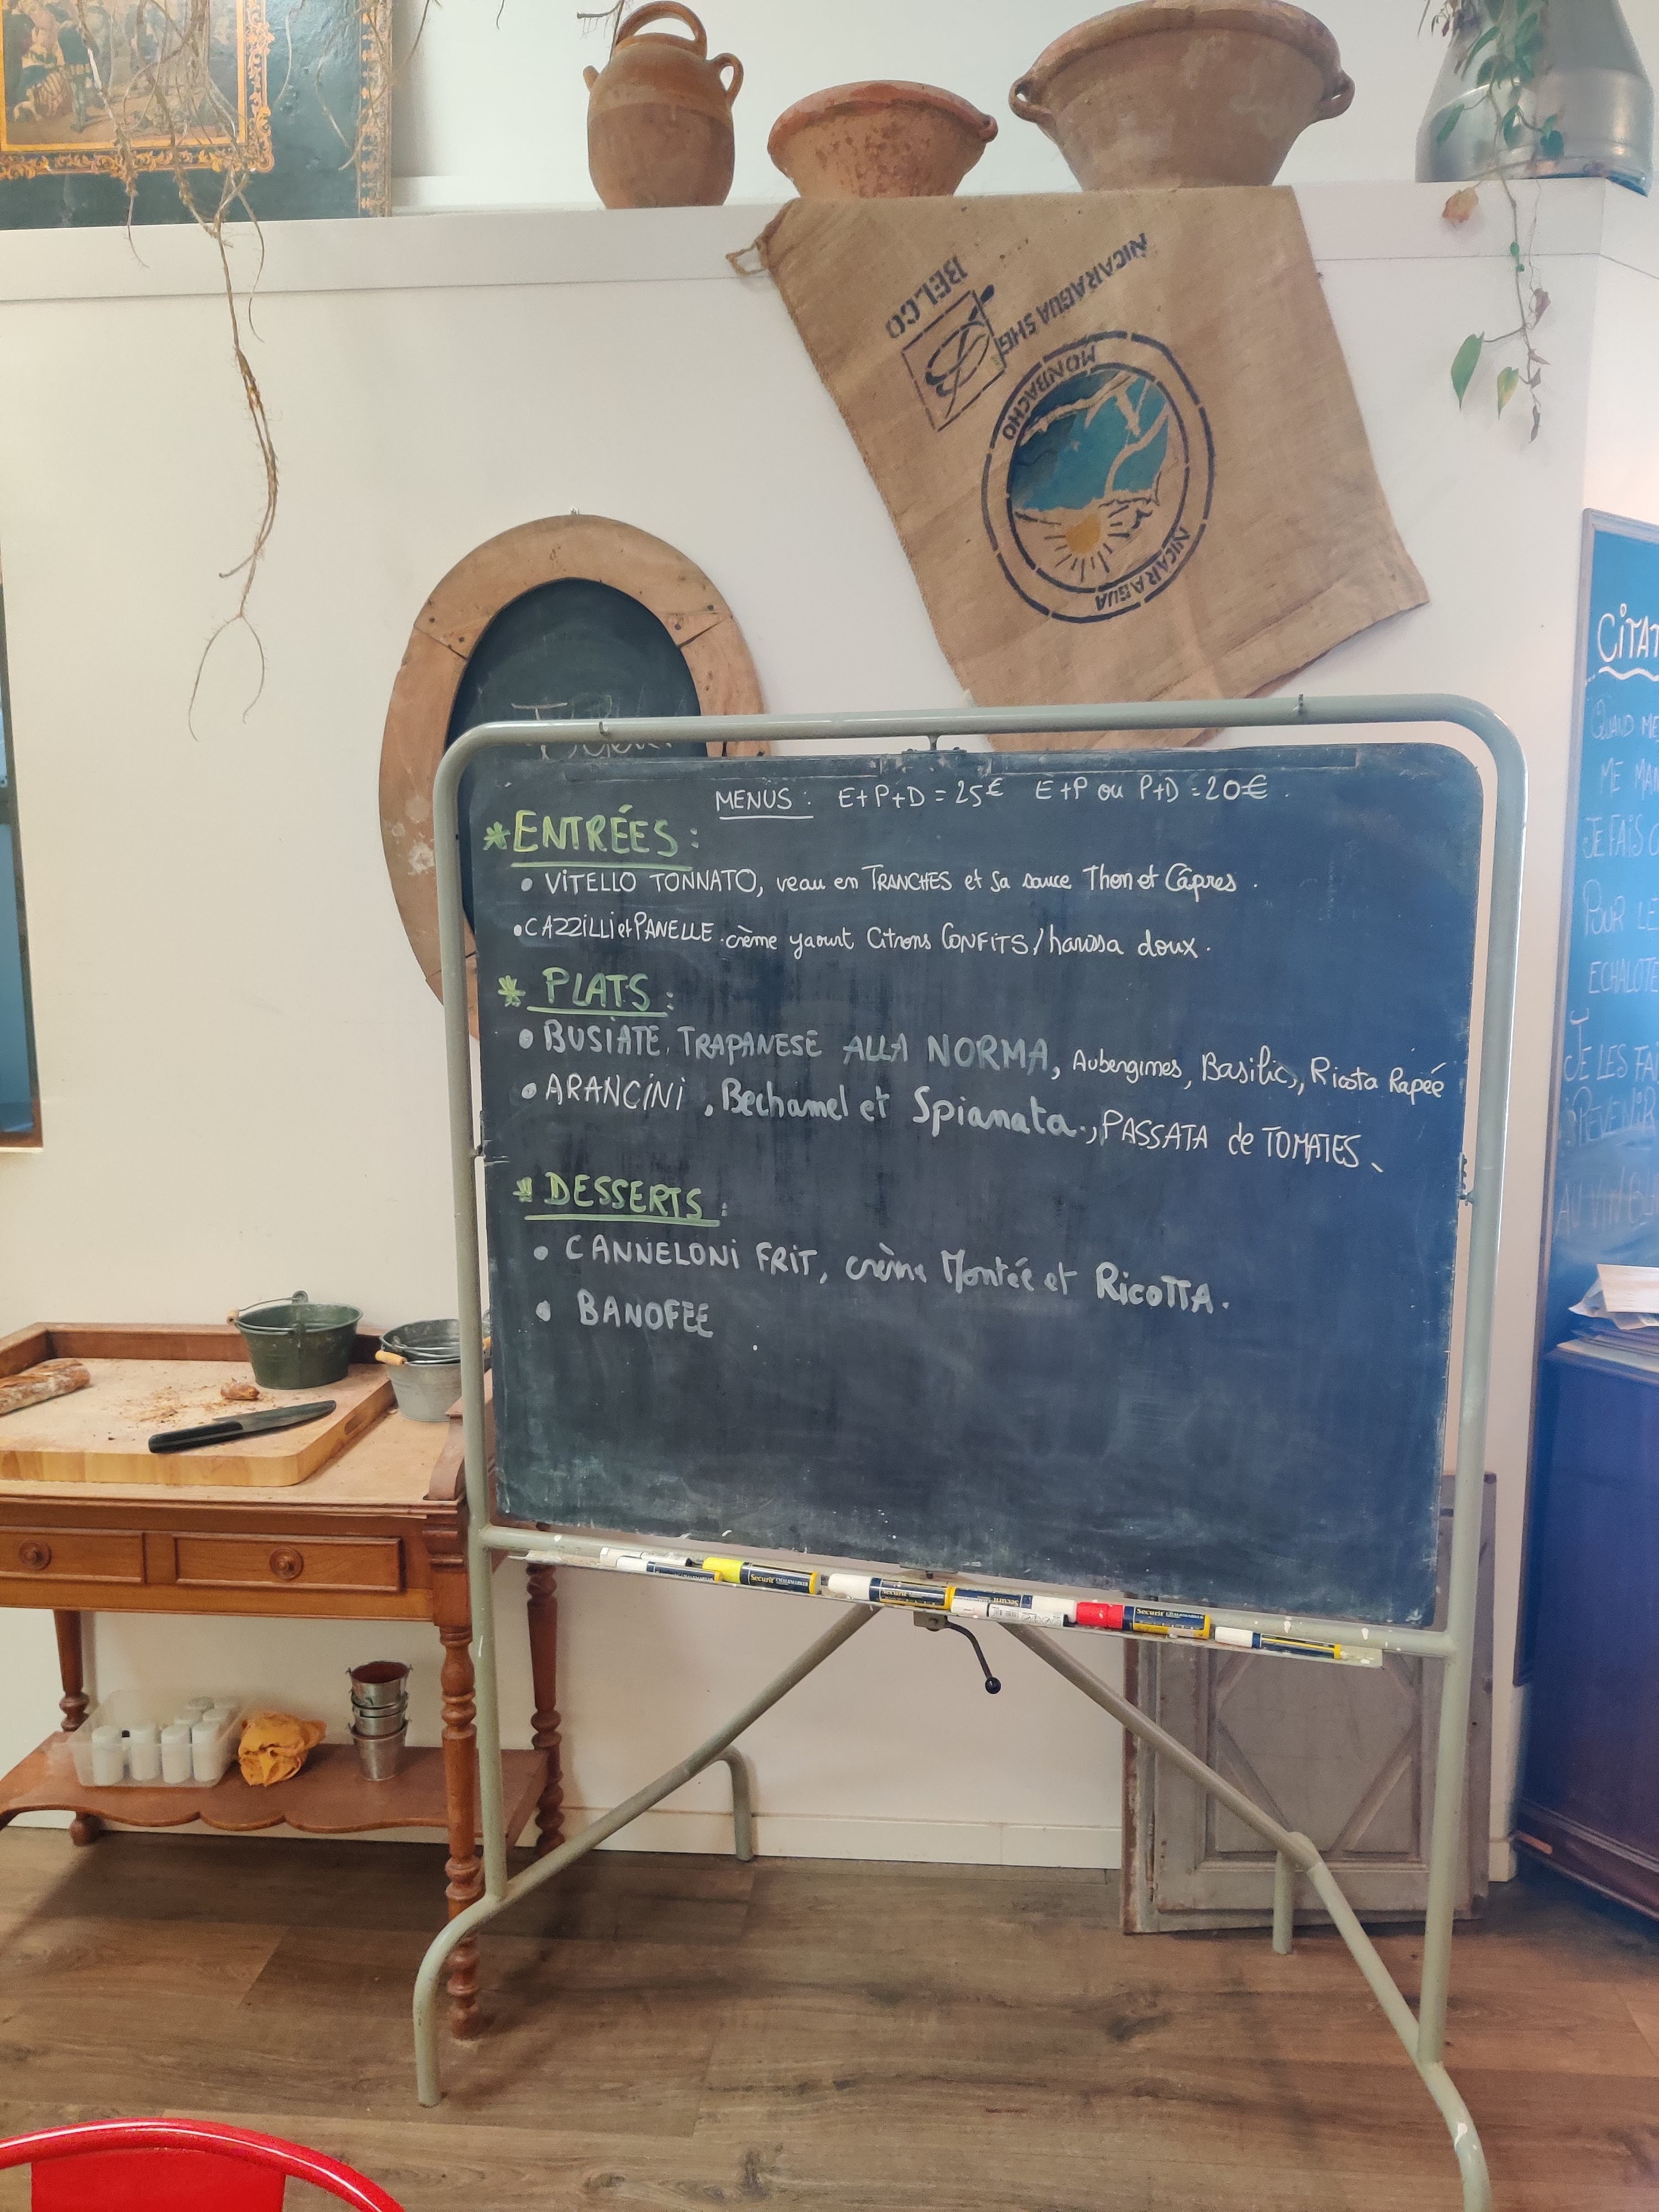 BELCO
NICARAGUA SHG
MONBACHO
NICARAGUA
MENUS : E+P+D = 25€ E+P ou P+D = 20€.
* ENTRÉES :
• VITELLO TONNATO, veau en TRANCHES et sa sauce Thon et Câpres.
• CAZZILLI et PANELLE. crème yaourt Citrons CONFITS / harissa doux.
* PLATS :
• BUSIATE TRAPANESE ALLA NORMA, Aubergines, Basilic, Ricota Rapée
• ARANCINI, Bechamel et Spianata, PASSATA de TOMATES.
* DESSERTS :
• CANNELONI FRIT, crème Montée et RICOTTA.
• BANOFEE
Securit
Securit
Securit
Securit
CITAT
QUAND ME
ME MAN
JE FAIS
POUR LE
ECHALOTE
JE LES FAI
REVENIR
AU VIN BL